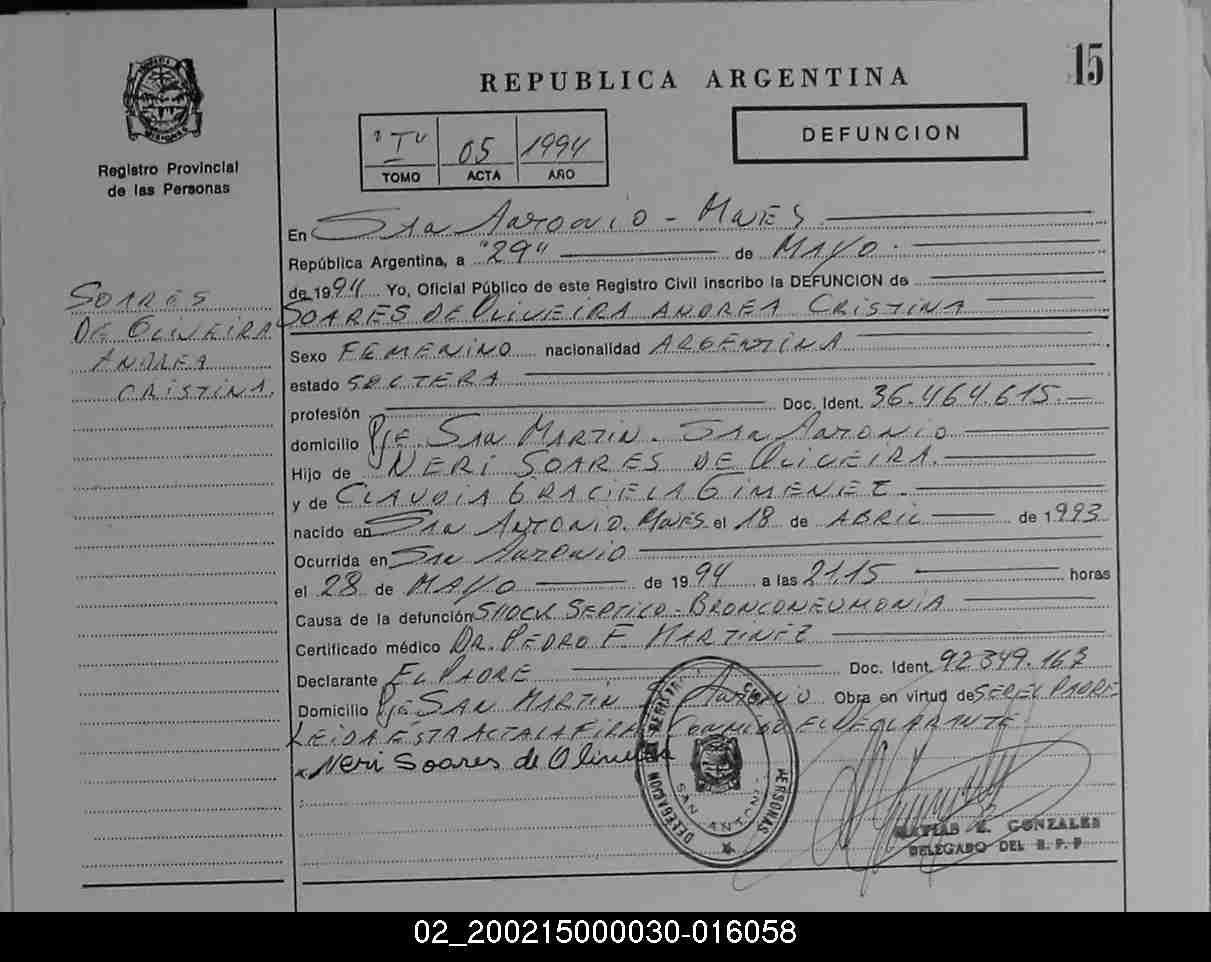 15
REPUBLICA ARGENTINA
DEFUNCION
"I" 05 1994
TOMO ACTA AÑO
Registro Provincial
de las Personas
SOARES
DE OLIVEIRA
ANDREA
CRISTINA.
En SAN ANTONIO - MNES
República Argentina, a "29" de MAYO
de 1994 Yo, Oficial Público de este Registro Civil inscribo la DEFUNCION de
SOARES DE OLIVEIRA ANDREA CRISTINA
Sexo FEMENINO nacionalidad ARGENTINA
estado SOLTERA
profesión Doc. Ident. 36.464.615.
domicilio Pje. SAN MARTIN. SAN ANTONIO
Hijo de NERI SOARES DE OLIVEIRA.
y de CLAUDIA GRACIELA GIMENEZ.
nacido en SAN ANTONIO. MNES. el 18 de ABRIL de 1993
Ocurrida en SAN ANTONIO
el 28 de MAYO de 1994 a las 21.15 horas
Causa de la defunción SHOCK SEPTICO - BRONCONEUMONIA
Certificado médico DR. PEDRO F. MARTINEZ
Declarante EL PADRE Doc. Ident. 92349.163
Domicilio Pje SAN MARTIN S. ANTONIO Obra en virtud de SER EL PADRE
LEIDA ESTA ACTA LA FIRMA CONMIGO EL DECLARANTE
Neri Soares de Oliveira
DELEGACION PERSONAS
SAN ANTONIO
MATIAS E. GONZALES
DELEGADO DEL R. P. P
02_200215000030-016058